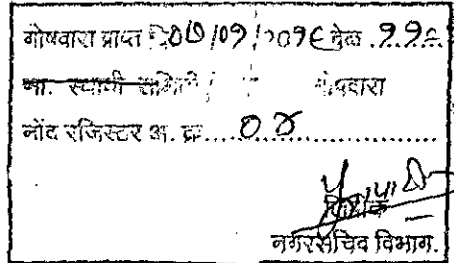 गोषवारा प्राप्त दि ०७/०१/२०१९ वेळ
मा. स्थायी समिती / गोषवारा
नोंद रजिस्टर अ. क्र. ....०४....
लिपिक
नगरसचिव विभाग.